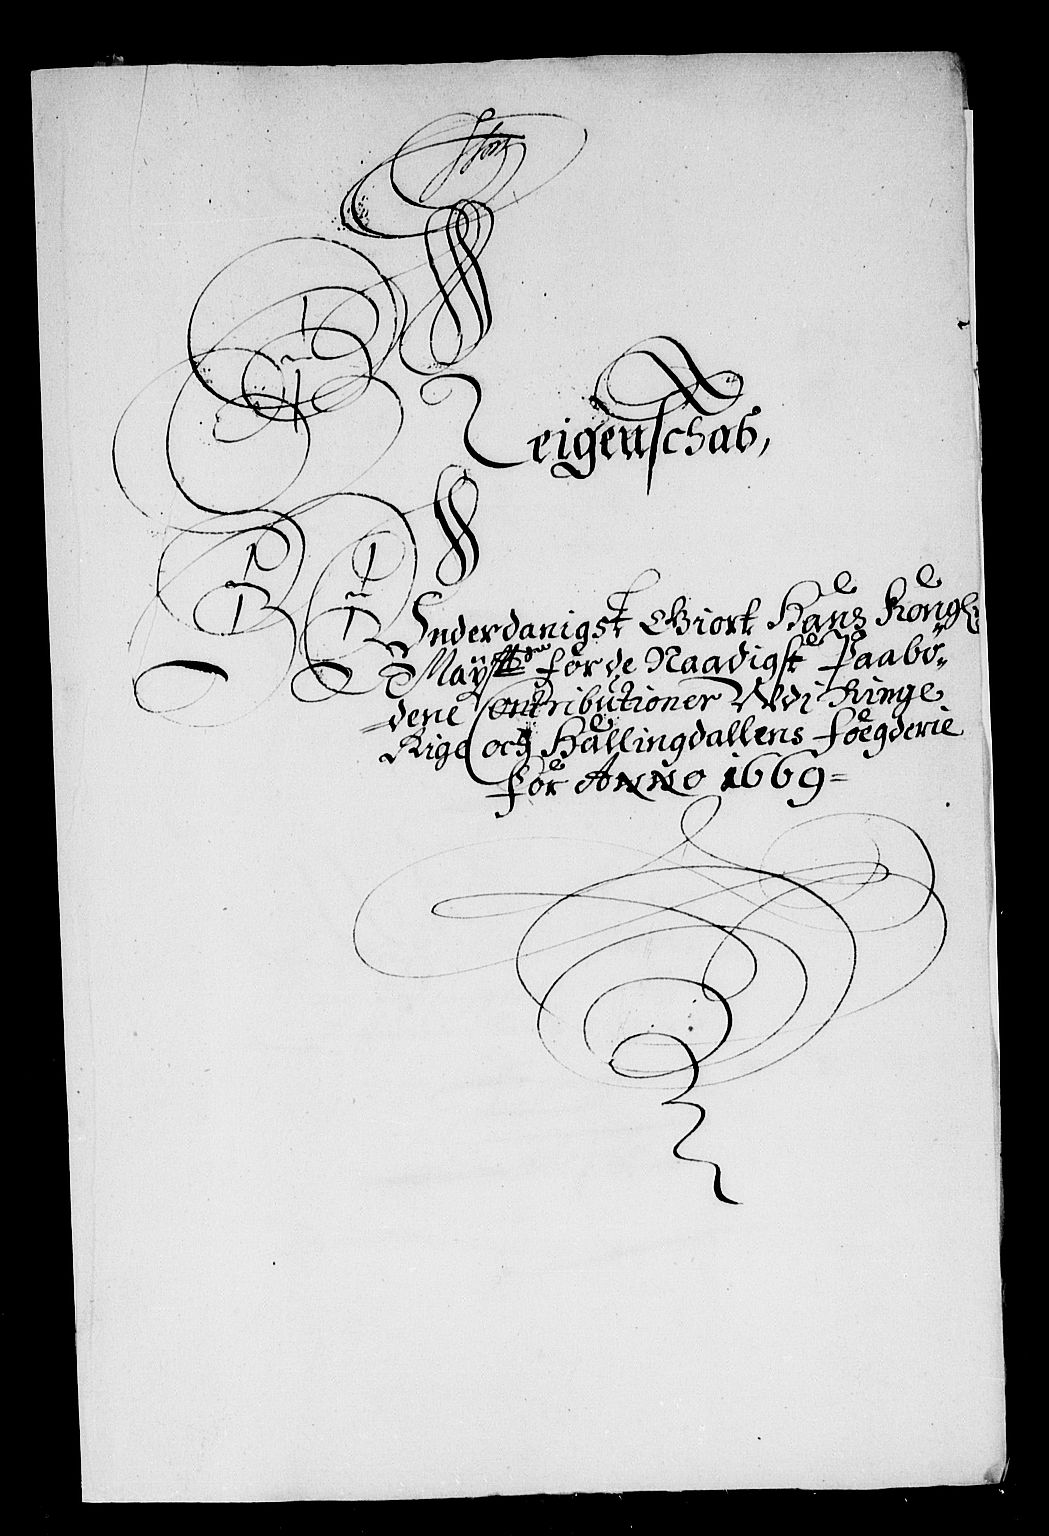 Reigenschab,
Vnderdanigst Giort Hans Kongl:
Mayst: for de Naadigst Paabö„
dene Contributioner Vdi Ringe
Rige och Hallingdallens Foegderie
for ANNO 1669=